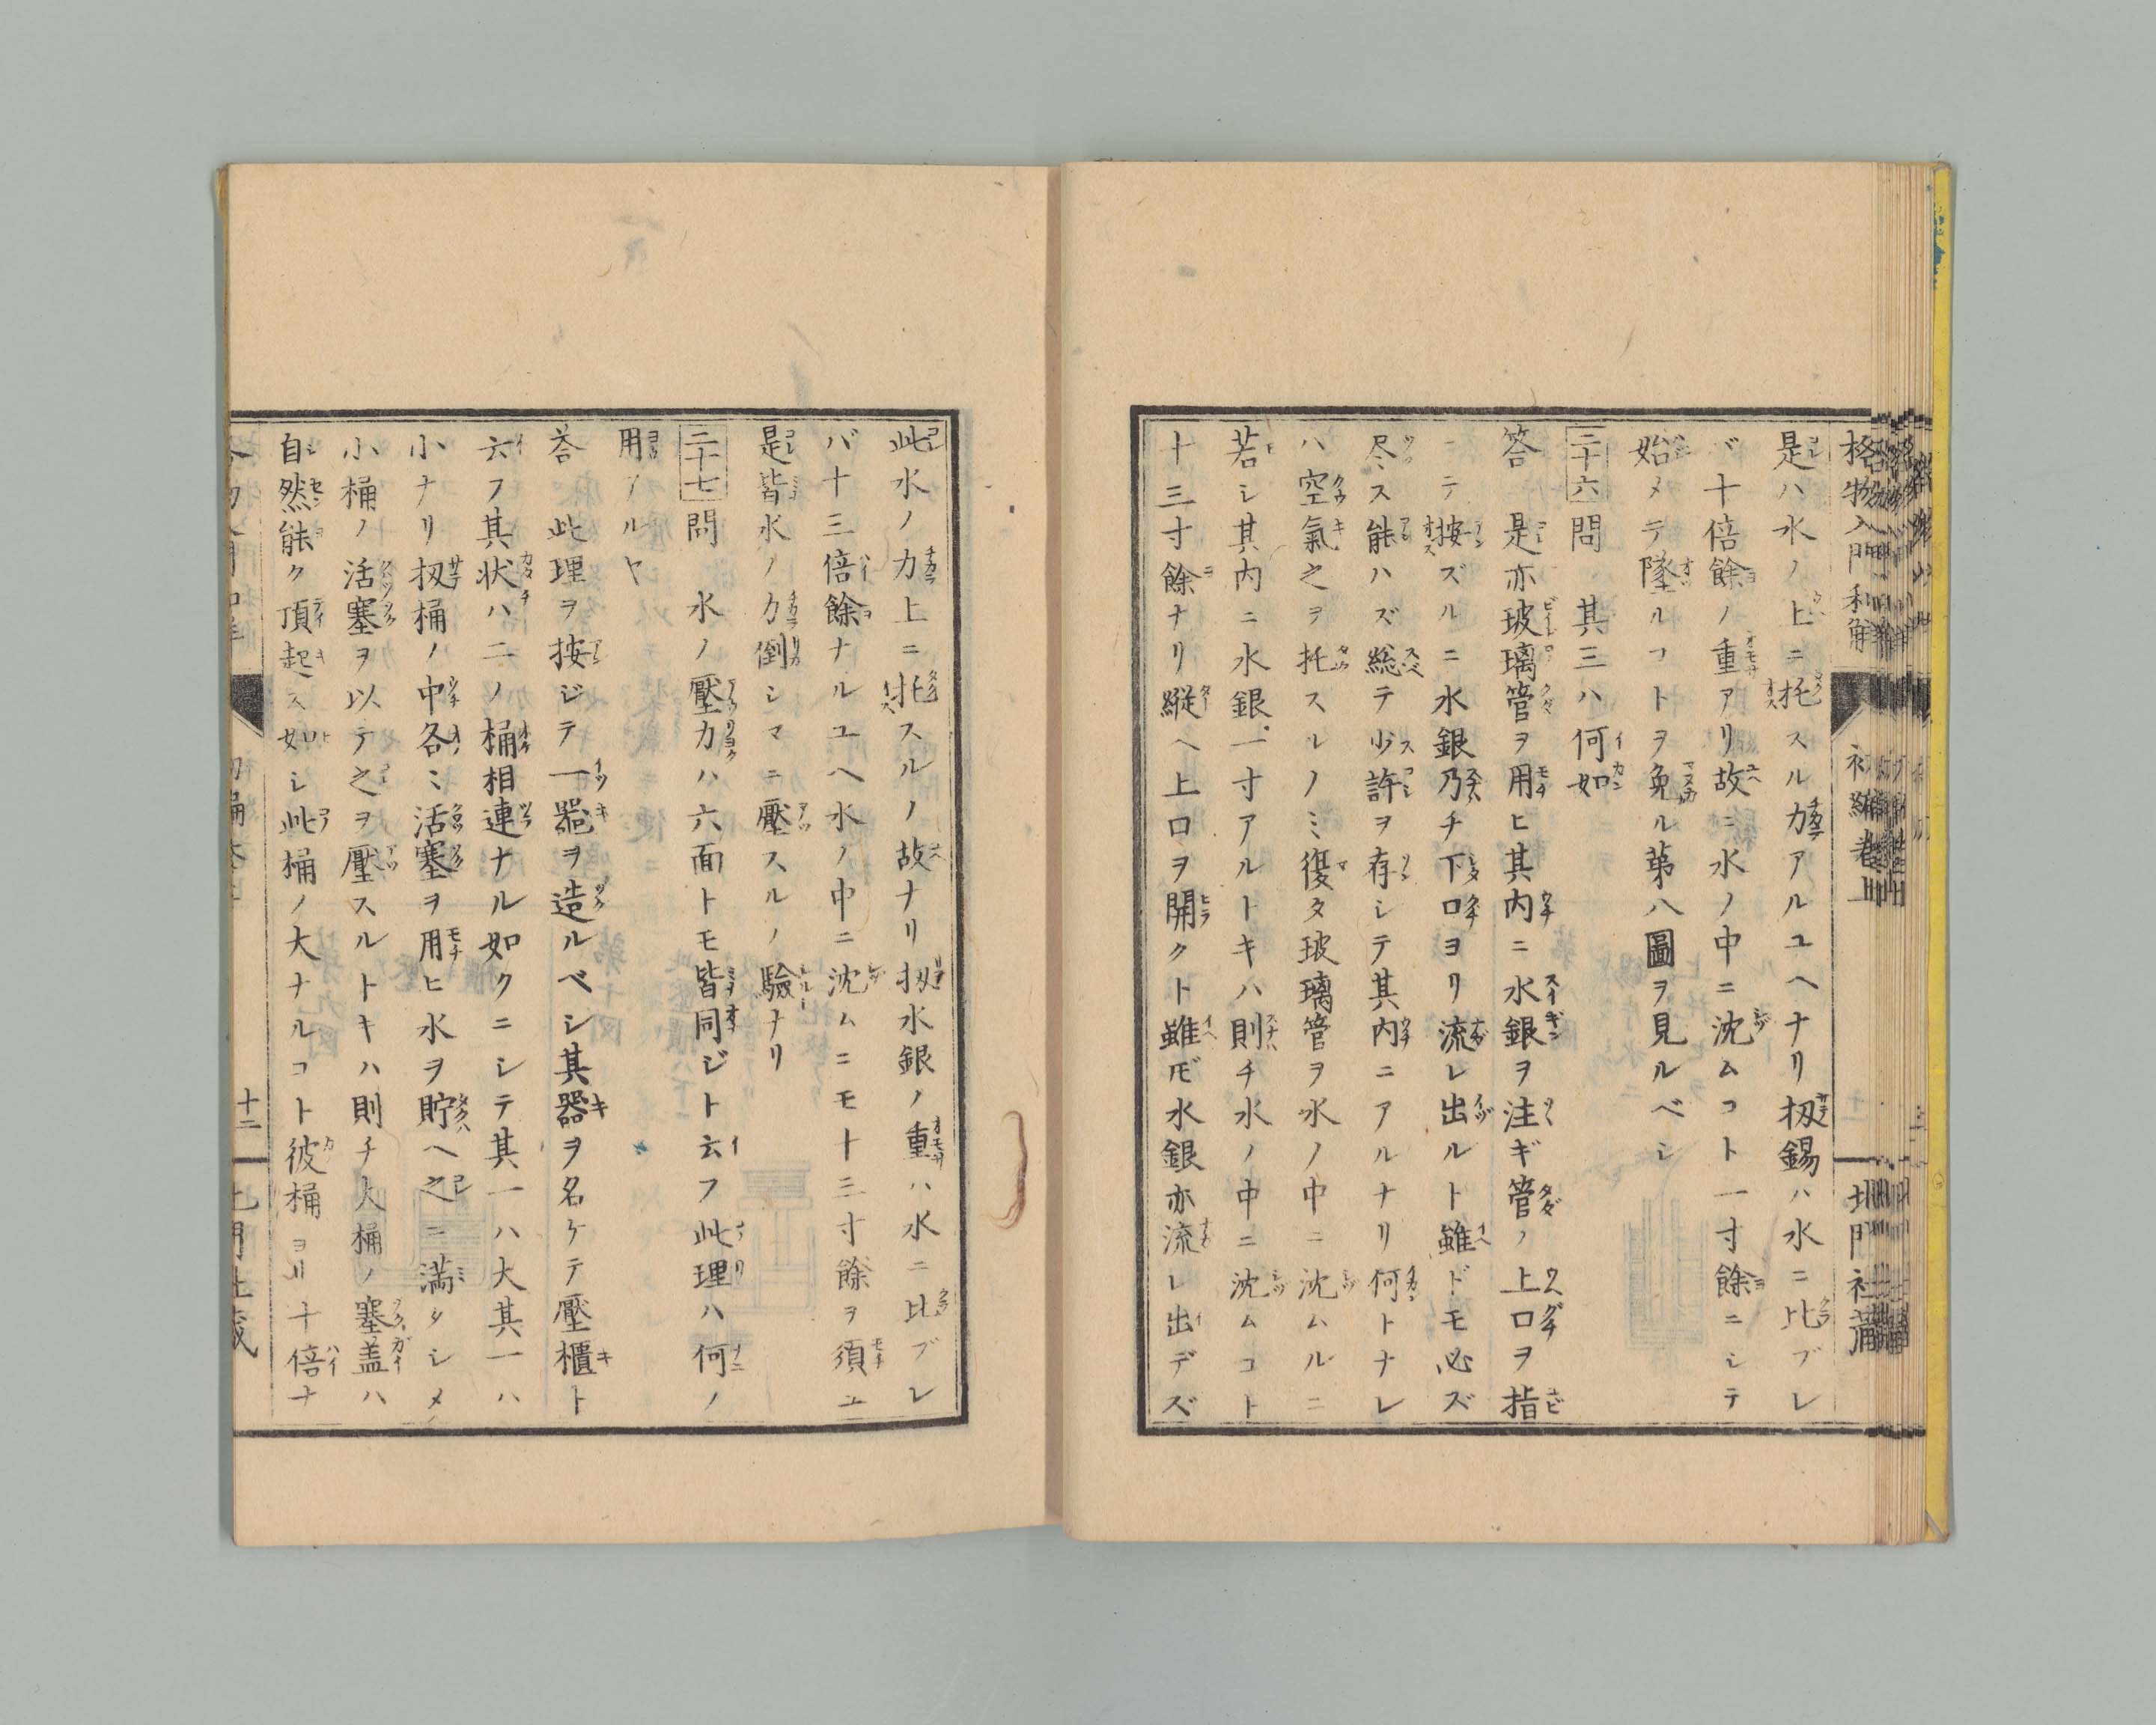 格物入門和解 初編卷上 北門社蔵
是ハ水ノ上ニ托スル力アルユヘナリ扨錫ハ水ニ比ブレ
バ十倍餘ノ重アリ故ニ水ノ中ニ沈ムコト一寸餘ニシテ
始メテ墜ルコトヲ免ル第八圖ヲ見ルベシ
二十六問 其三ハ何如
答 是亦玻璃管ヲ用ヒ其内ニ水銀ヲ注ギ管ノ上口ヲ指
ニテ按ズルニ水銀乃チ下口ヨリ流レ出ルト雖ドモ必ズ
尽ス能ハズ総テ少許ヲ存シテ其内ニアルナリ何トナレ
ハ空氣之ヲ托スルノミ復タ玻璃管ヲ水ノ中ニ沈ムルニ
若シ其内ニ水銀一寸アルトキハ則チ水ノ中ニ沈ムコト
十三寸餘ナリ縦ヘ上口ヲ開クト雖ドモ水銀亦流レ出デズ
此水ノ力上ニ托スルノ故ナリ扨水銀ノ重ハ水ニ比ブレ
バ十三倍餘ナルユヘ水ノ中ニ沈ムニモ十三寸餘ヲ須ユ
是皆水ノ力倒シマニ壓スルノ驗ナリ
二十七問 水ノ壓力ハ六面トモ皆同ジト云フ此理ハ何ノ
用アルヤ
答 此理ヲ按ジテ一器ヲ造ルベシ其器ヲ名ケテ壓櫃ト
云フ其状ハ二ノ桶相連ナル如クニシテ其一ハ大其一ハ
小ナリ扨桶ノ中各ミ活塞ヲ用ヒ水ヲ貯ヘ之ニ満タシメ
小桶ノ活塞ヲ以テ之ヲ壓スルトキハ則チ大桶ノ塞盖ハ
自然能ク頂起ス如シ此桶ノ大ナルコト彼桶ヨリ十倍ナ
十二